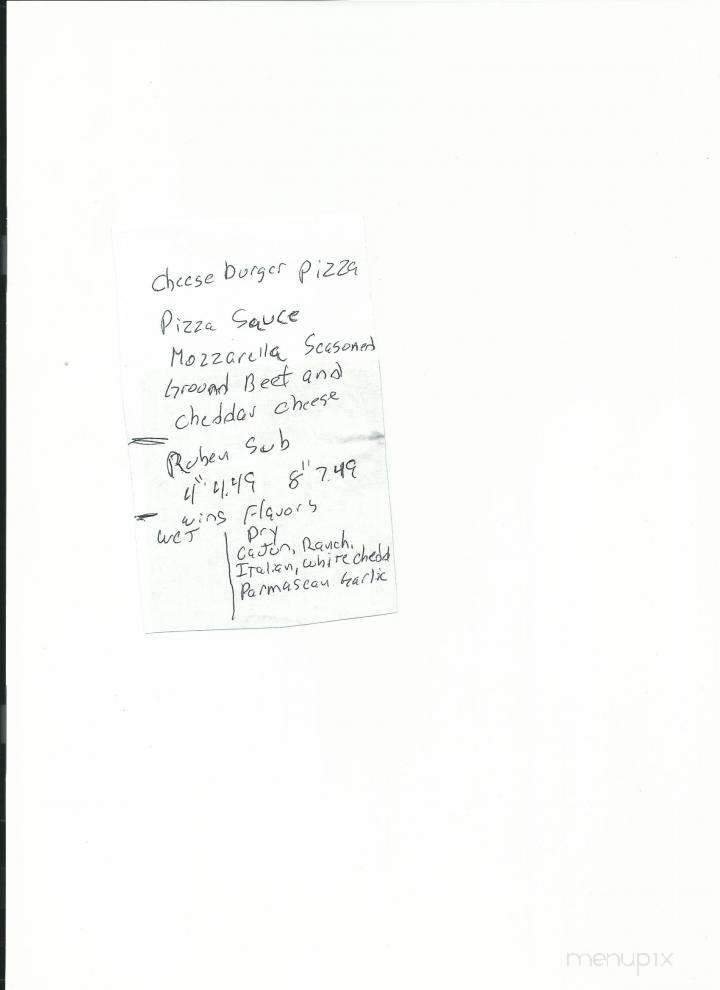 Cheese burger Pizza
Pizza Sauce
Mozzarella Seasoned
Ground Beef and
cheddar cheese
Ruben Sub
4" 4.49 8" 7.49
wing Flavors
WET Dry
Cajun, Ranch,
Italian, white chedd
Parmascan Garlic
menupix